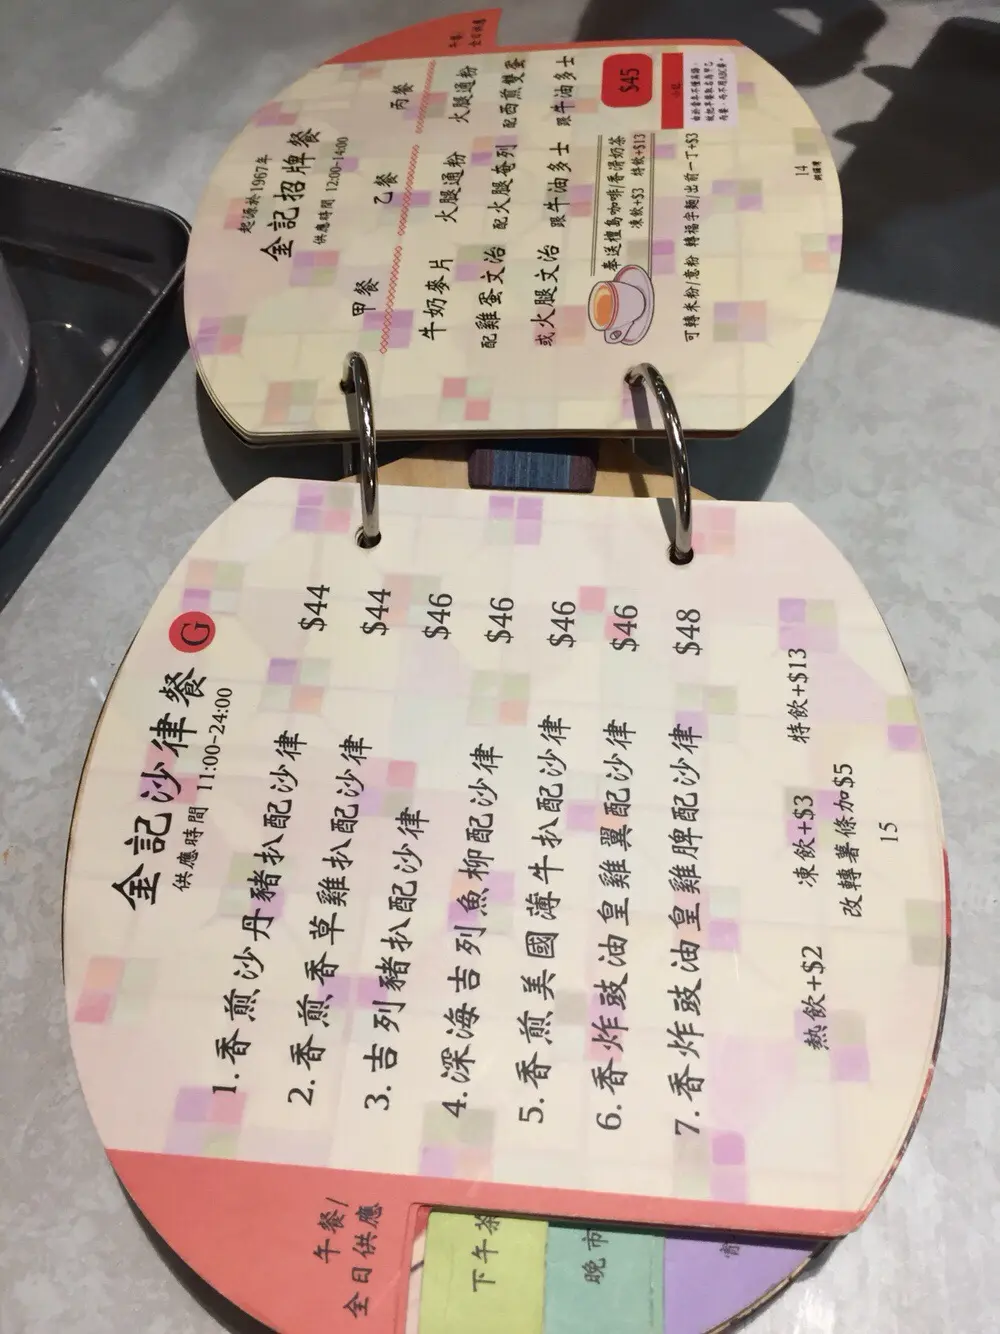 午餐/
全日供應
起源於1967年
金記招牌餐
供應時間 12:00-14:00
甲餐
乙餐
丙餐
牛奶麥片
火腿通粉
火腿通粉
配雞蛋文治
配火腿奄列
配西煎雙蛋
或火腿文治
跟牛油多士
跟牛油多士
奉送檀島咖啡/香滑奶茶
凍飲+$3 特飲+$13
$45
可轉米粉/意粉 轉福字麵/出前一丁+$3
14
金記沙律餐
G
供應時間 11:00-24:00
1.香煎沙丹豬扒配沙律 $44
2.香煎香草雞扒配沙律 $44
3.吉列豬扒配沙律 $46
4.深海吉列魚柳配沙律 $46
5.香煎美國薄牛扒配沙律 $46
6.香炸豉油皇雞翼配沙律 $46
7.香炸豉油皇雞脾配沙律 $48
熱飲+$2 凍飲+$3 特飲+$13
改轉薯條加$5
15
午餐/
全日供應
下午茶
晚市